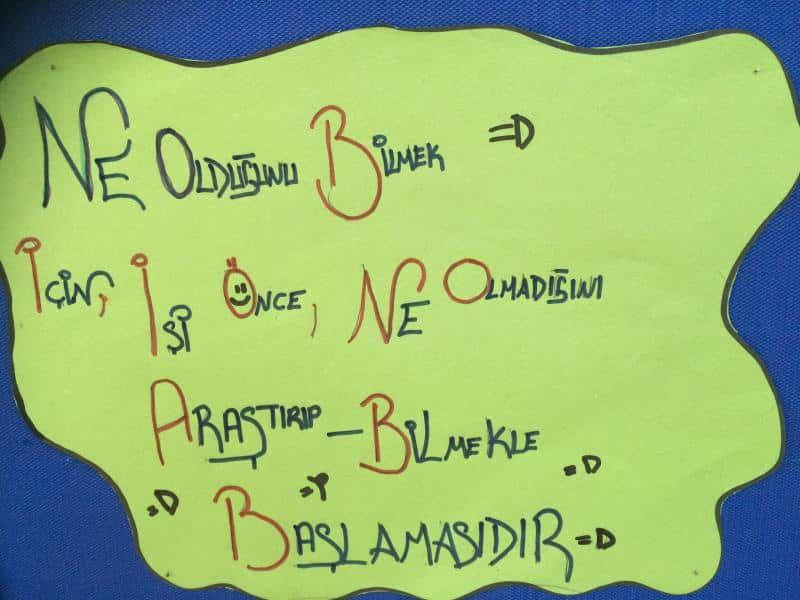 NE OLDUĞUNU BİLMEK =D
İÇİN, İŞİ ÖNCE, NE OLMADIĞINI
ARAŞTIRIP-BİLMEKLE =D
=D BAŞLAMASIDIR =P =D